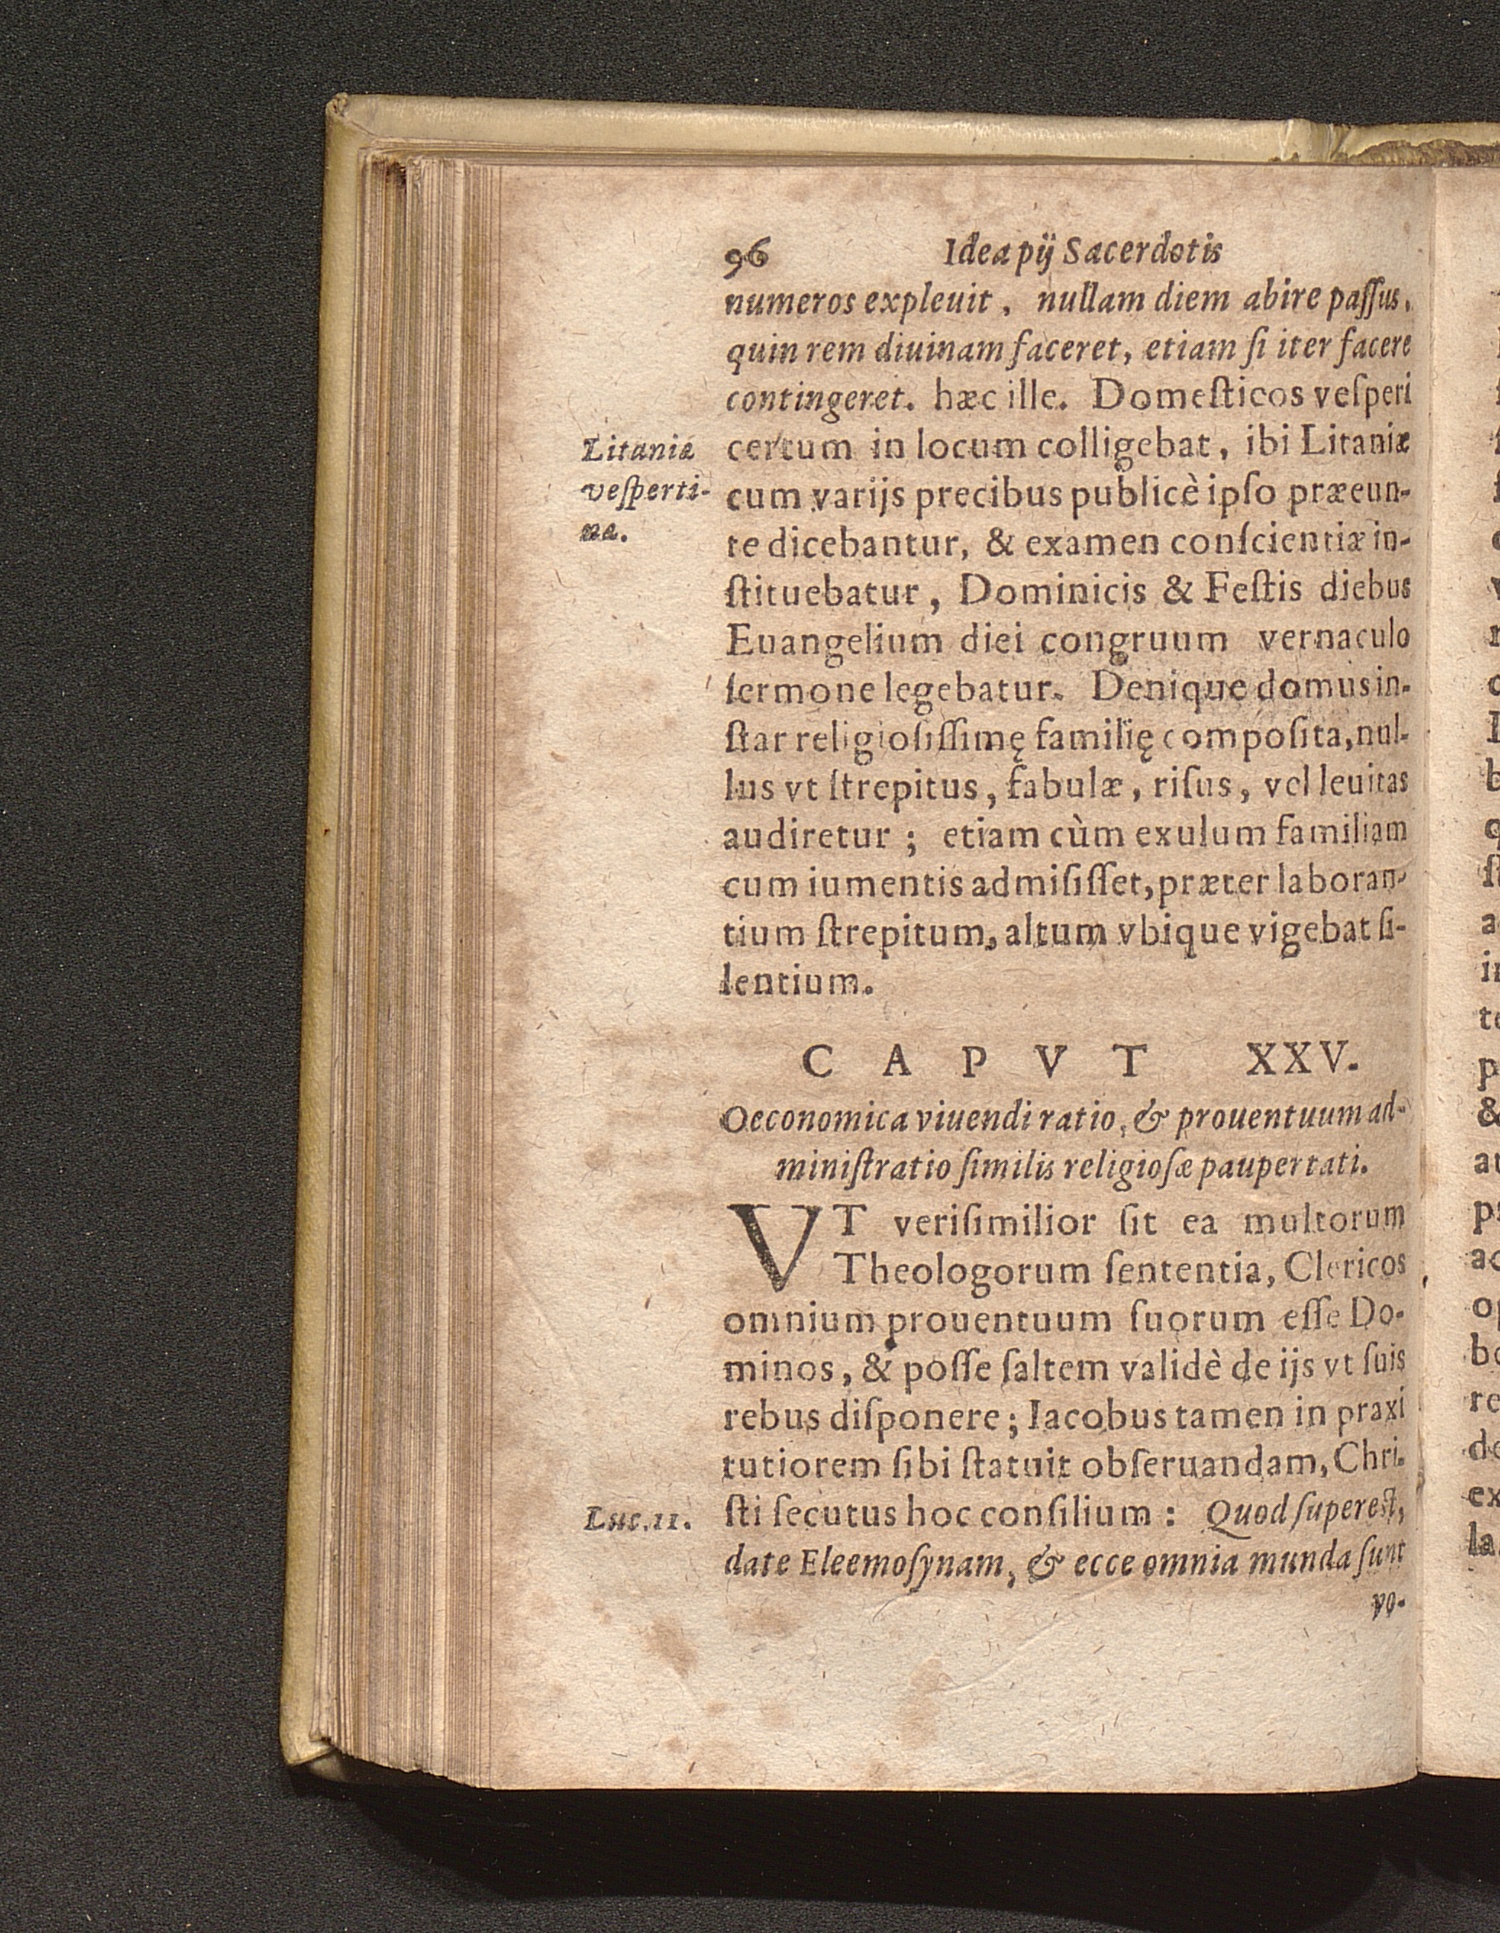 96 Idea pij Sacerdotis
numeros expleuit, nullam diem abire paſſus,
quin rem diuinam faceret, etiam ſi iter facere
contingeret. hæc ille. Domeſticos veſperi
Litaniæ
veſperti-
næ.
certum in locum colligebat, ibi Litaniæ
cum varijs precibus publicè ipſo præeun-
te dicebantur, & examen conſcientiæ in-
ſtituebatur, Dominicis & Feſtis diebus
Euangelium diei congruum vernaculo
ſermone legebatur. Denique domus in-
ſtar religioſiſſimę familię compoſita, nul-
lus vt ſtrepitus, fabulæ, riſus, vel leuitas
audiretur; etiam cùm exulum familiam
cum iumentis admiſiſſet, præter laboran-
tium ſtrepitum, altum vbique vigebat ſi-
lentium.
CAPVT XXV.
Oeconomica viuendi ratio, & prouentuum ad-
miniſtratio ſimilis religioſæ paupertati.
VT veriſimilior ſit ea multorum
Theologorum ſententia, Clericos
omnium prouentuum ſuorum eſſe Do-
minos, & poſſe ſaltem validè de ijs vt ſuis
rebus diſponere; Iacobus tamen in praxi
tutiorem ſibi ſtatuit obſeruandam, Chri-
Luc. 11.
ſti ſecutus hoc conſilium: Quod ſupereſt,
date Eleemoſynam, & ecce omnia munda ſunt
vo-